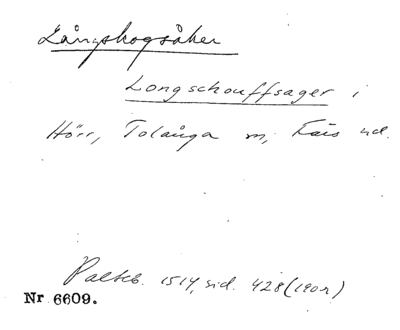 Långskogsåker
Longschouffsager i
Hörr, Tolånga sn, Färs hd.
Palteb. 1514, sid. 428 (190r)
Nr 6609.